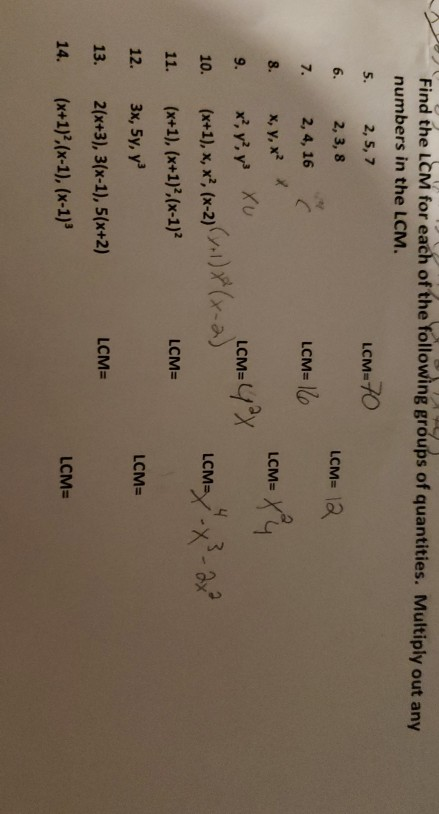 Find the LCM for each of the following groups of quantities. Multiply out any
numbers in the LCM.
5. 2, 5, 7 LCM= 70
6. 2, 3, 8 LCM= 12
7. 2, 4, 16 LCM= 16
8. x, y, x² x LCM= x²y
9. x², y², y³ LCM= y²x
10. (x+1), x, x², (x-2) (x+1)x²(x-2) LCM= x⁴-x³-2x²
11. (x+1), (x+1)²,(x-1)² LCM=
12. 3x, 5y, y³ LCM=
13. 2(x+3), 3(x-1), 5(x+2) LCM=
14. (x+1)²,(x-1), (x-1)³ LCM=